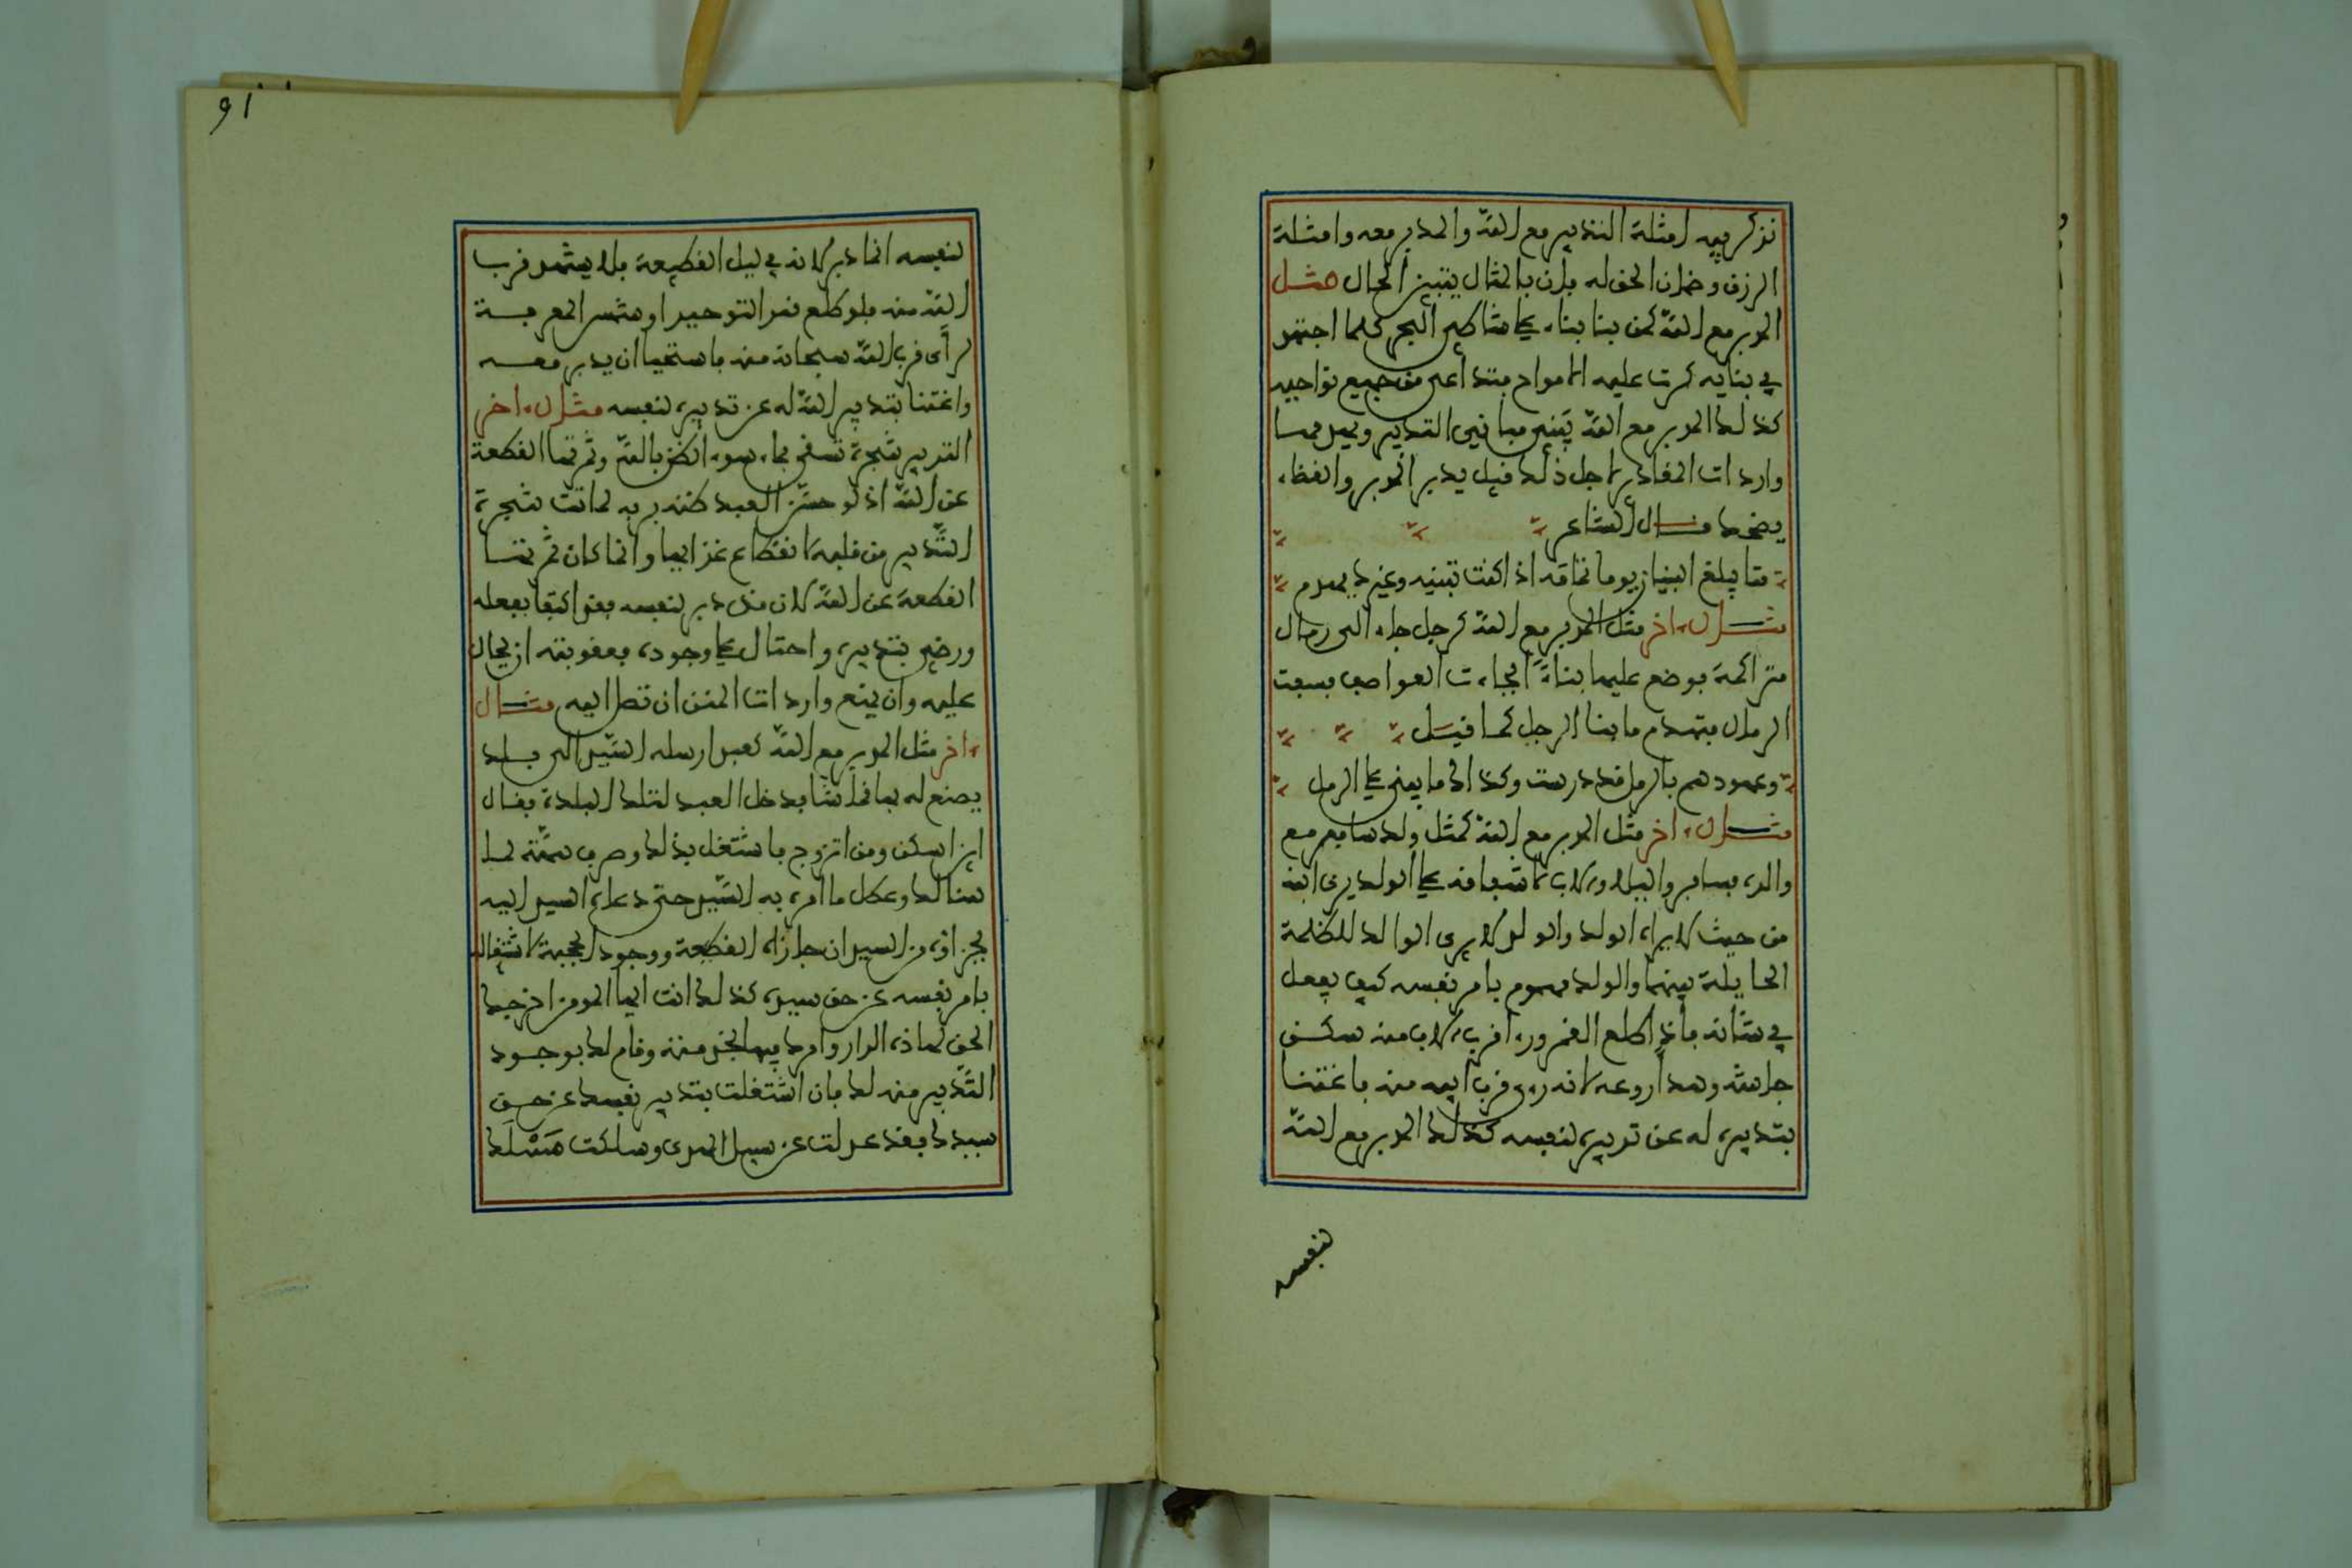 نذكر فيه امثلة التدبير مع الله والمدبر معه وامثلة
الرزق وضمان الحق له فان بالمثال يتبين الحال مثل
المدبر مع الله كمن بنا بناء على شاطئ البحر كلما اجتهد
في بنايه كرت عليه الامواج فتداعى من جميع نواحيه
كذلك المدبر مع الله يبني مباني التدبير وتهدمها
واردات المقادير لاجل ذلك قيل يدبر المدبر والقضاء
يضحك قال الشاعر
متا يبلغ البنيان يوما تمامه اذا كنت تبنيه وغيرك يهدم
مثال اخر مثل المدبر مع الله كرجل جاء الى رمال
متراكمة فوضع عليها بناءً فجاءت العواصف فسفت
الرمال فتهدم ما بنا الرجل كما قيل
وعهودهم بالرمل قد درست وكذاك ما يبنى على الرمل
مثال اخر مثل المدبر مع الله كمثل ولد سافر مع
والده فسافر واليلا والاب لاشفاقه على الولد يرى ابنه
من حيث لا يراه الولد والولد لا يرى الوالد للظلمة
الحايلة بينهما والولد مهموم بامر نفسه كيف يفعل
في شانه فاذا اطلع القمر وراى قرب الاب منه سكن
جاشه وهدا روعه لانه راى قرب ابيه منه فاغتنا
بتدبيره له عن تدبيره لنفسه كذلك المدبر مع الله
لنفسه
91
لنفسه انما دبر لانه في ليل القطيعة فلا يشهد قرب
الله منه فلو طلع قمر التوحيد او شمس المعرفة
لرأى قرب الله سبحانه منه فاستحيا ان يدبر معه
واغتنا بتدبير الله له عن تدبيره لنفسه مثال اخر
التدبير شجرة تسقى بماء سوء الظن بالله وثمرتها القطعة
عن الله اذ لو حسن العبد ظنه بربه لماتت شجرة
التدبير من قلبه لانقطاع غذايها وانما كان ثمرتها
القطعة عن الله لان من دبر لنفسه فقد اكتفا بعقله
ورضي بتدبيره واحتال على وجوده فعقوبته ان يحال
عليه وان يمنع واردات المنن ان تصل اليه مثال
اخر مثل المدبر مع الله كعبد ارسله السيد الى بلد
يصنع له بها قماشا فدخل العبد لتلك البلدة فقال
اين اسكن ومن اتزوج فاشتغل بذلك وصرف همته لما
هنالك وعطل ما امره به السيد حتى دعاه السيد اليه
فجزاؤه من السيد ان جازاه القطعة ووجود الحجبة لاشتغاله
بامر نفسه عن حق سيده كذلك انت ايها المومن اخرجك
الحق لهاذه الدار وامرك فيها بخدمته وقام لك بوجود
التدبير منه لك فان اشتغلت بتدبير نفسك عن حق
سيدك فقد عدلت عن سبيل الهدى وسلكت مَسْلَك